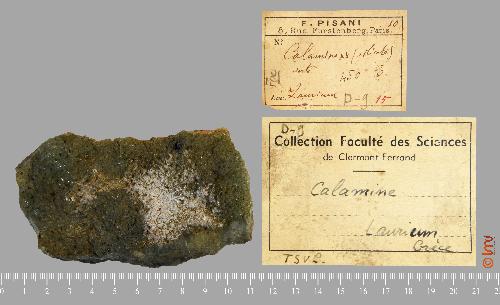 F. PISANI
8, Rue Furstenberg, Paris
10
No
verte
450 g.
Loc. Laurium
D-9 15
D-9
Collection Faculté des Sciences
de Clermont-Ferrand
Calamine
Laurium
Grèce
TSVL
0 1 2 3 4 5 6 7 8 9 10 11 12 13 14 15 16 17 18 19 20 21 22